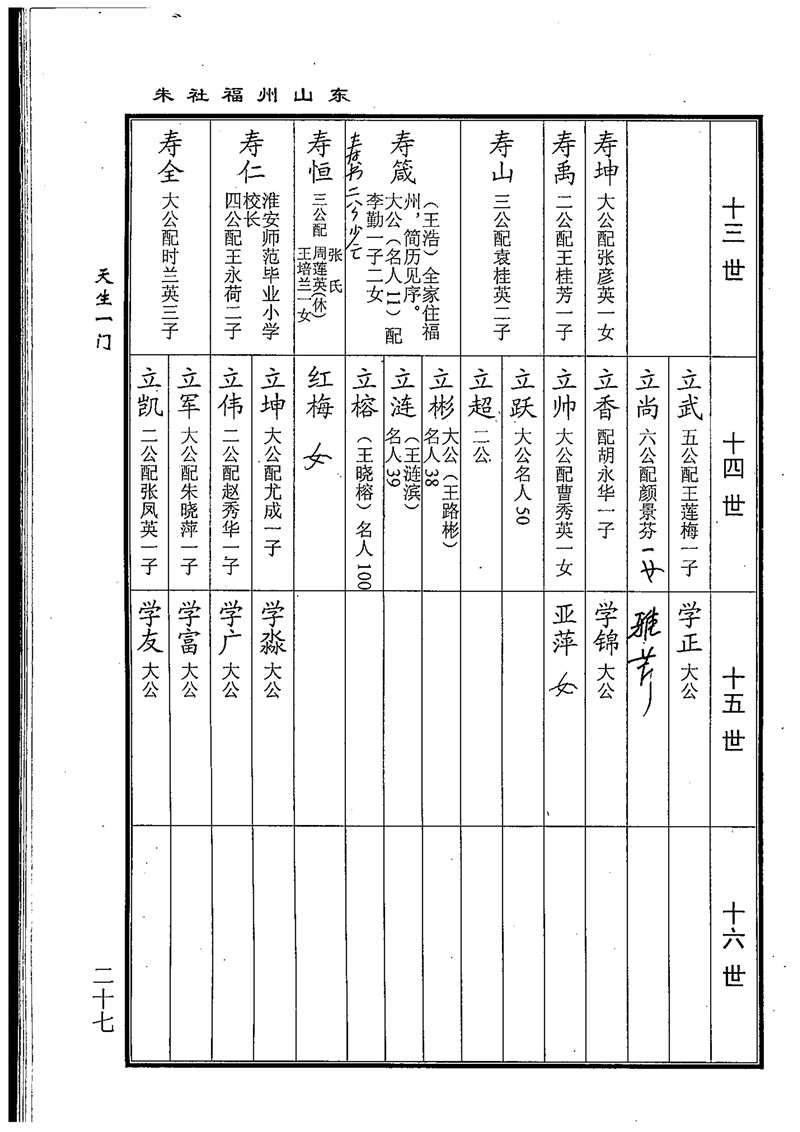 东山州福社朱
十三世
寿坤 大公配张彦英一女
寿禹 二公配王桂芳一子
寿山 三公配袁桂英二子
寿箴 (王浩)全家住福
州,简历见序。
大公(名人11)配
李勤一子二女
二公少亡
寿恒 三公配
张氏
周莲英(休)
王培兰一女
寿仁 淮安师范毕业小学
校长
四公配王永荷二子
寿全 大公配时兰英三子
十四世
立武 五公配王莲梅一子
立尚 六公配颜景芬一女
立香 配胡永华一子
立帅 大公配曹秀英一女
立跃 大公名人50
立超 二公
立彬 大公(王路彬)
名人38
立涟 (王涟滨)
名人39
立榕 (王晓榕)名人100
红梅 女
立坤 大公配尤成一子
立伟 二公配赵秀华一子
立军 大公配朱晓萍一子
立凯 二公配张凤英一子
十五世
学正 大公
雅芳
学锦 大公
亚萍 女
学淼 大公
学广 大公
学富 大公
学友 大公
十六世
天生一门
二十七